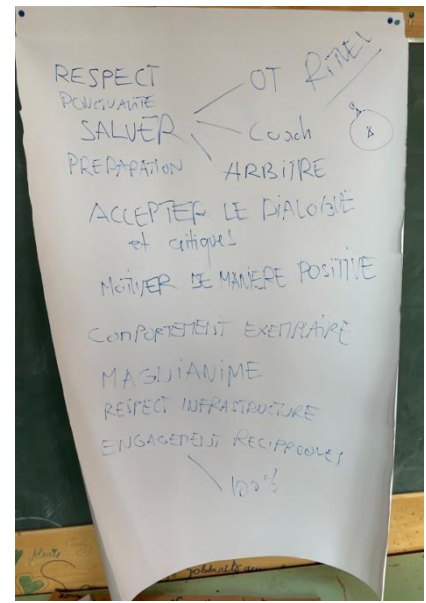 RESPECT
PONCUALITÉ
SALUER
OT RITUEL
Coach
ARBITRE
PREPARATION
ACCEPTER LE DIALOGUE
et critiques
MOTIVER DE MANIERE POSITIVE
COMPORTEMENT EXEMPLAIRE
MAGNIANIME
RESPECT INFRASTRUCTURE
ENGAGEMENT RECIPROQUES
100%